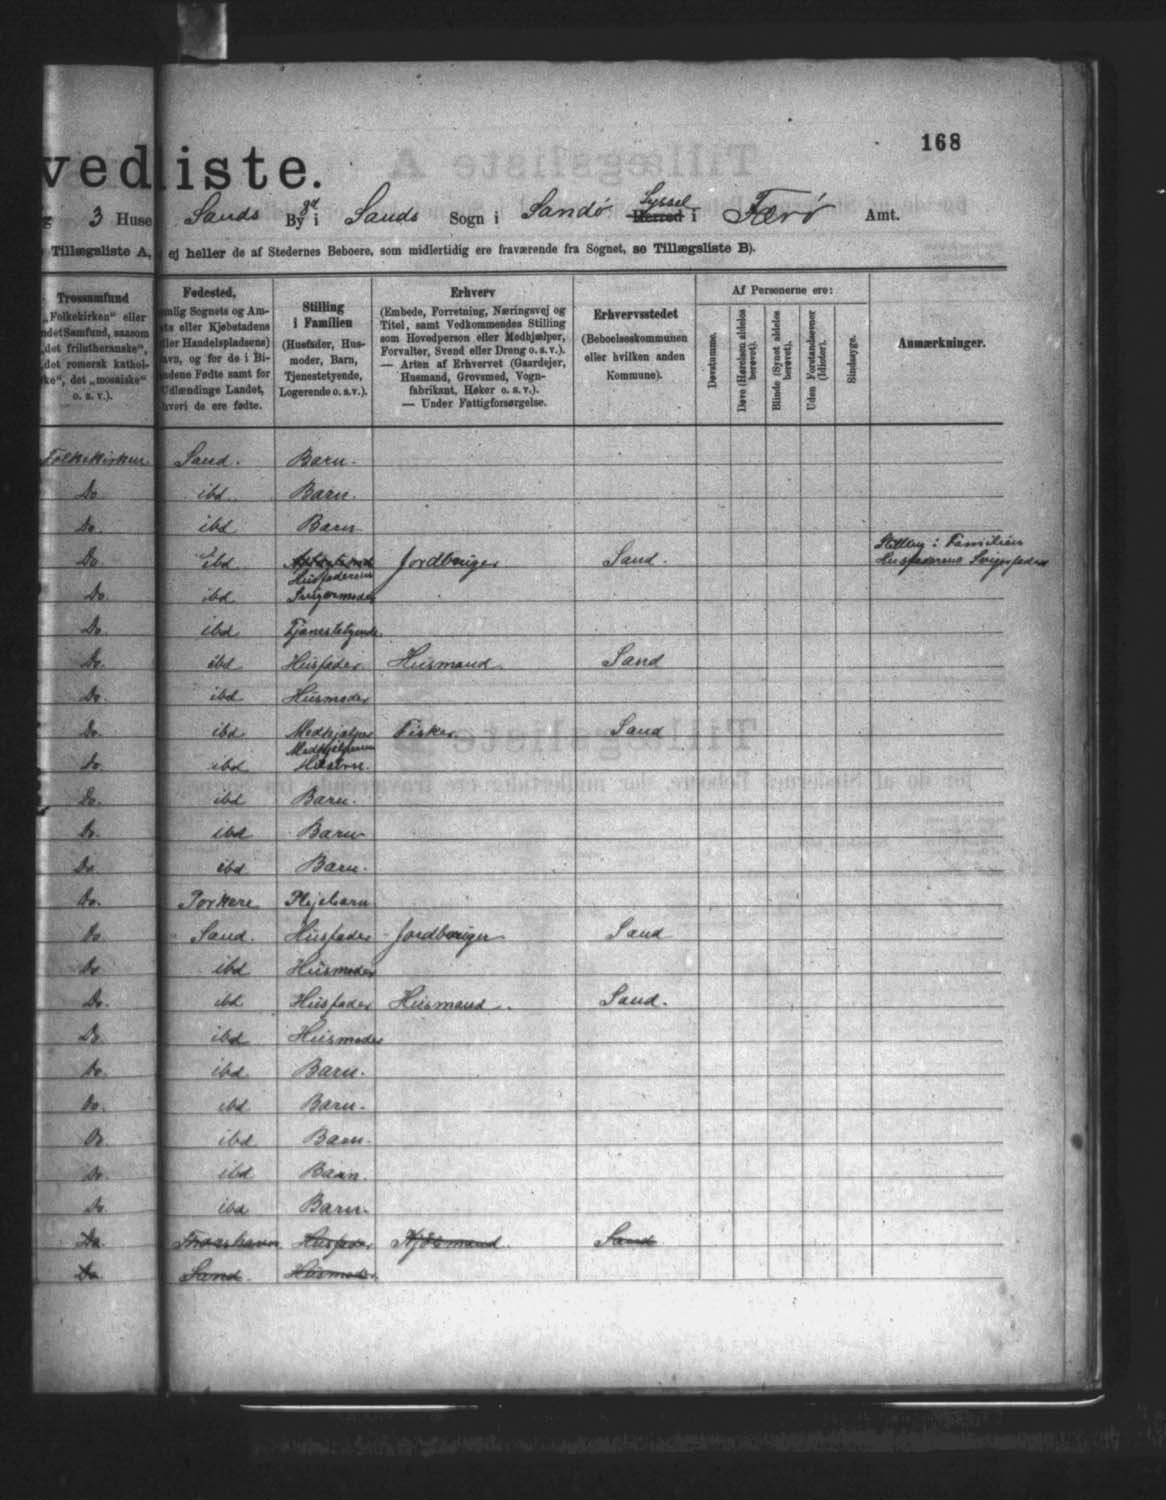 168
vedliste.
g 3 Huse Sands By gd i Sands Sogn i Sandø Herred Syssel i Færø Amt.
Tillægsliste A, ej heller de af Stedernes Beboere, som midlertidig ere fraværende fra Sognet, se Tillægsliste B).
Trossamfund
„Folkekirken" eller
ndet Samfund, saasom
„det frilutheranske",
„det romersk kathol-
ke", det „mosaiske"
o. s. v.).
Fødested,
mlig Sognets og Am-
ts eller Kjøbstadens
ller Handelspladsens)
avn, og for de i Bi-
dene Fødte samt for
Udlændinge Landet,
hvori de ere fødte.
Stilling
i Familien
(Husfader, Hus-
moder, Barn,
Tjenestetyende,
Logerende o. s. v.).
Erhverv
(Embede, Forretning, Næringsvej og
Titel, samt Vedkommendes Stilling
som Hovedperson eller Medhjælper,
Forvalter, Svend eller Dreng o. s. v.).
— Arten af Erhvervet (Gaardejer,
Husmand, Grovsmed, Vogn-
fabrikant, Høker o. s. v.).
— Under Fattigforsørgelse.
Erhvervsstedet
(Beboelseskommunen
eller hvilken anden
Kommune).
Af Personerne ere:
Døvstumme.
Døve (Hørelsen aldeles
berøvet).
Blinde (Synet aldeles
berøvet).
Uden Forstandsevner
(Idioter).
Sindssyge.
Anmærkninger.
Folkekirken Sand. Barn.
Do ibd. Barn.
Do. ibd Barn
Do ibd. Jordbruger Sand. Stilling i Familien
Husfaderens Svigerfader
Do. ibd. Husfaderens
Svigermoder
Do. ibd Tjenestetyende.
Do. ibd Husfader. Husmand. Sand
Do. ibd Husmoder
Do. ibd Medhjælper Fisker. Sand
Do. ibd Medhjælperens
Hustru.
Do. ibd Barn.
Do. ibd Barn
Do. ibd Barn.
Do. Porkere Plejebarn
Do Sand. Husfader Jordbruger Sand
Do ibd Husmoder
Do. ibd Husfader Husmand. Sand.
Do. ibd Husmoder
Do. ibd. Barn.
Do. ibd Barn.
Do. ibd Barn.
Do. ibd Barn.
Do. ibd Barn.
Do. Thorshavn Husfader Sand
Do. Sand Husmoder.